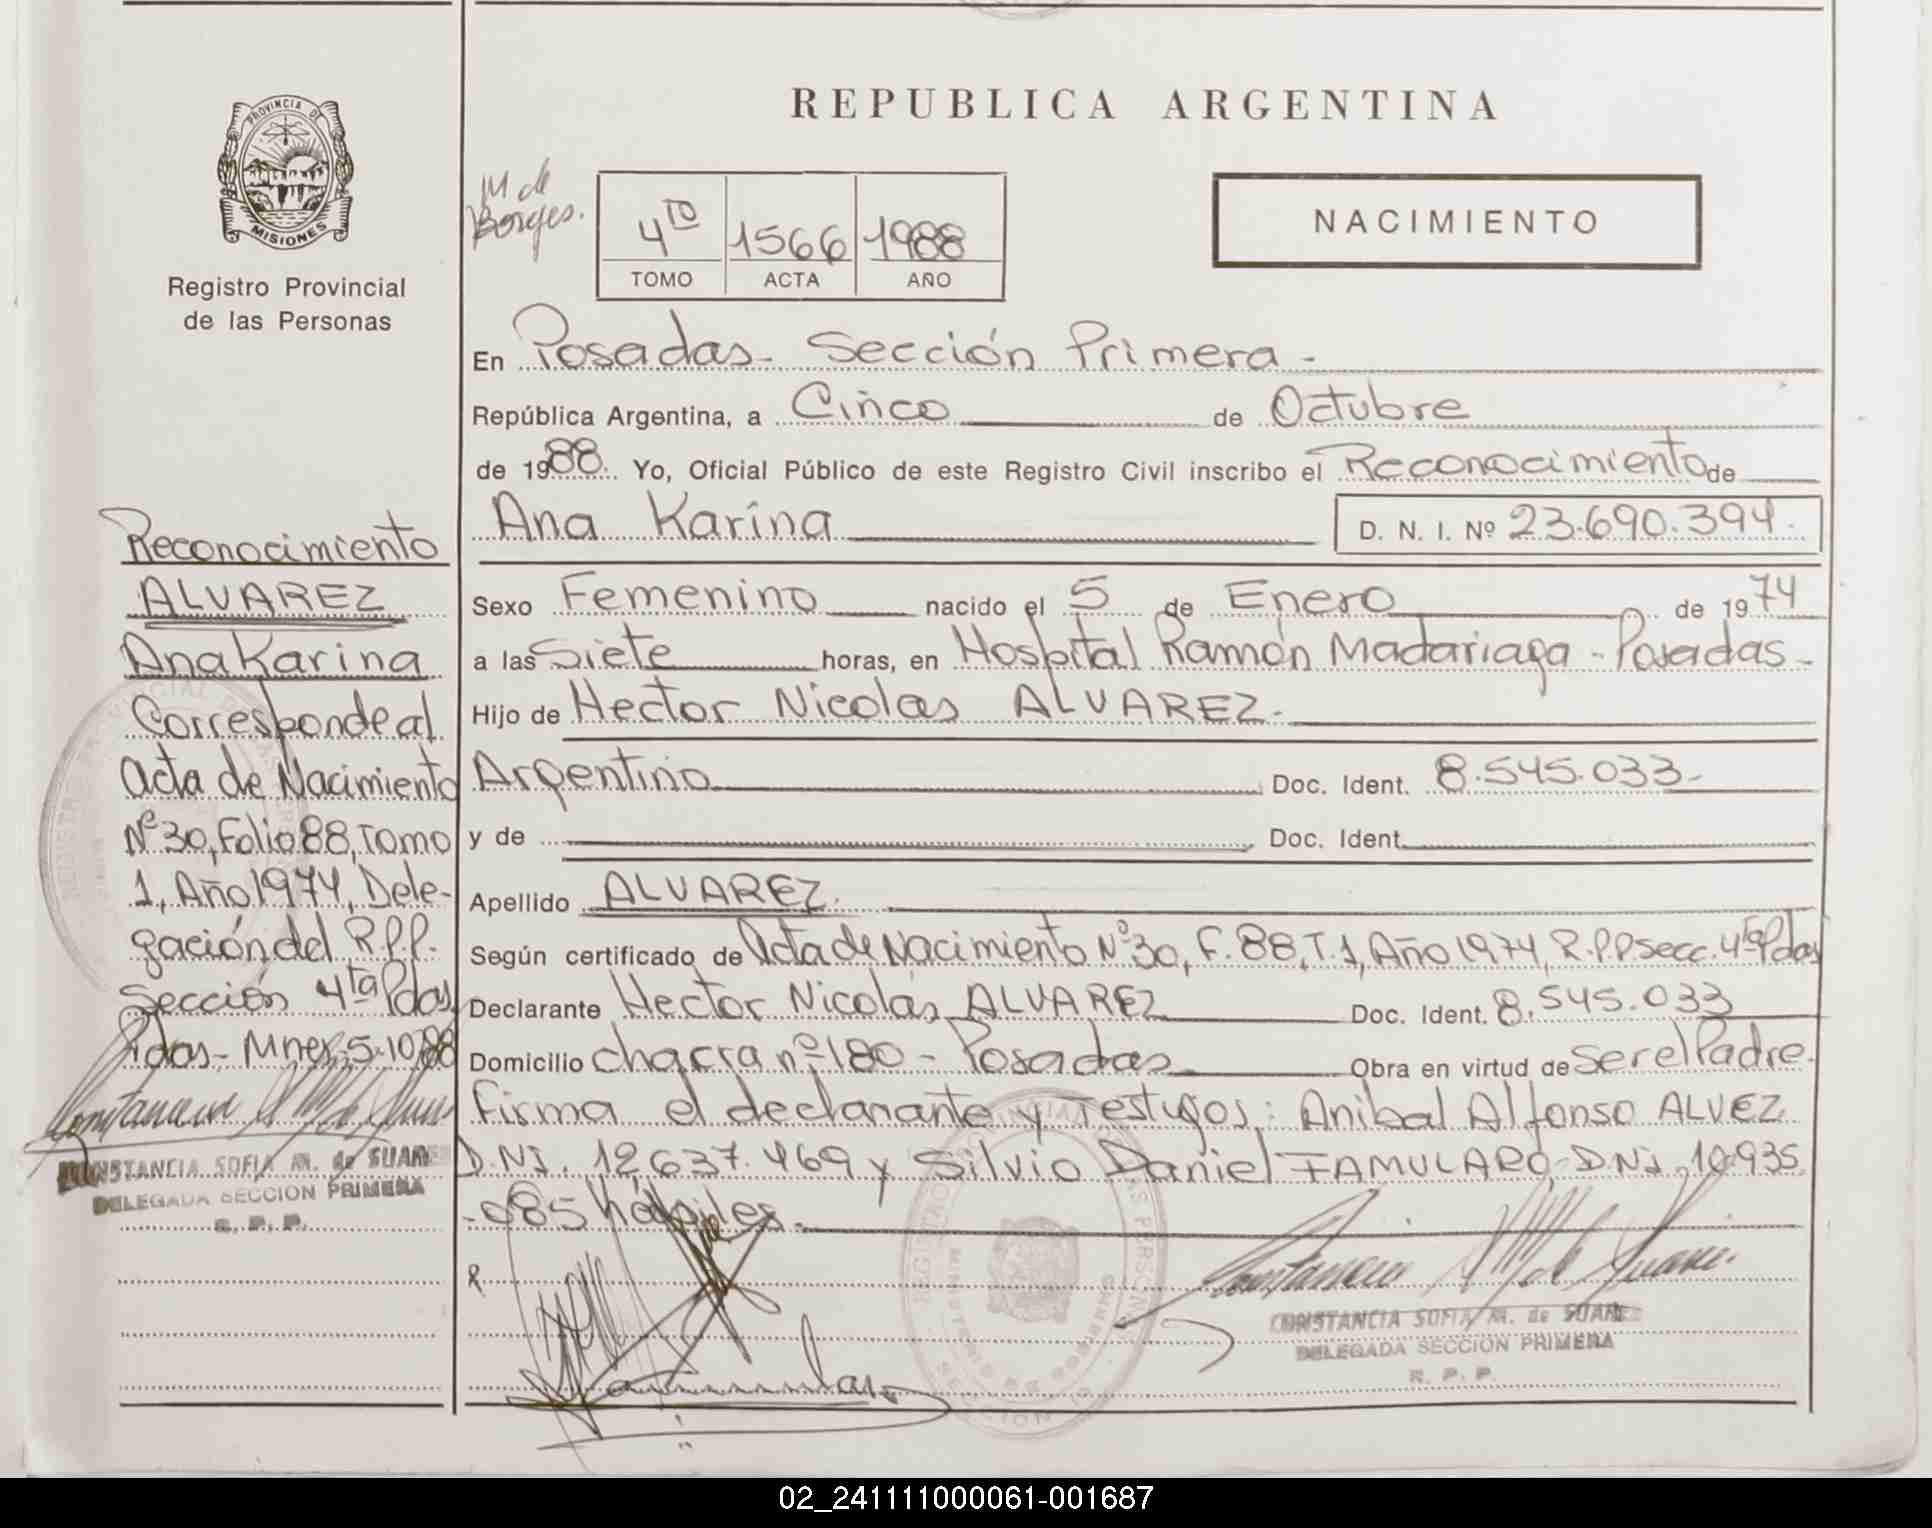 REPUBLICA ARGENTINA
PROVINCIA DE
MISIONES
Registro Provincial
de las Personas
M de
Borges.
4TO 1566 1988
TOMO ACTA AÑO
NACIMIENTO
En Posadas - Sección Primera -
República Argentina, a Cinco de Octubre
de 1988. Yo, Oficial Público de este Registro Civil inscribo el Reconocimiento de
Ana Karina D. N. I. Nº 23.690.394.
Sexo Femenino nacido el 5 de Enero de 1974
a las Siete horas, en Hospital Ramón Madariaga - Posadas -
Hijo de Hector Nicolas ALVAREZ.
Argentino Doc. Ident. 8.545.033-
y de Doc. Ident.
Apellido ALVAREZ.
Según certificado de Acta de Nacimiento Nº 30, F. 88, T. 1, Año 1974, R.P.P Secc. 4ta Pdas
Declarante Hector Nicolás ALVAREZ Doc. Ident. 8.545.033
Domicilio chacra nº 180 - Posadas Obra en virtud de Ser el Padre.
Firma el declarante y testigos: Anibal Alfonso ALVEZ
D.N.I. 12.637.469 y Silvio Daniel FAMULARO, D.N.I. 10.935
.085 hábiles.
CONSTANCIA SOFIA M. de SUAREZ
DELEGADA SECCION PRIMERA
R. P. P.
Reconocimiento
ALVAREZ
Ana Karina
Corresponde al
Acta de Nacimiento
Nº 30, Folio 88, Tomo
1, Año 1974, Dele-
gación del R.P.P.
Sección 4ta Pdas.
Pdas - Mnes, 5-10-88
CONSTANCIA SOFIA M. de SUAREZ
DELEGADA SECCION PRIMERA
R. P. P.
02_241111000061-001687